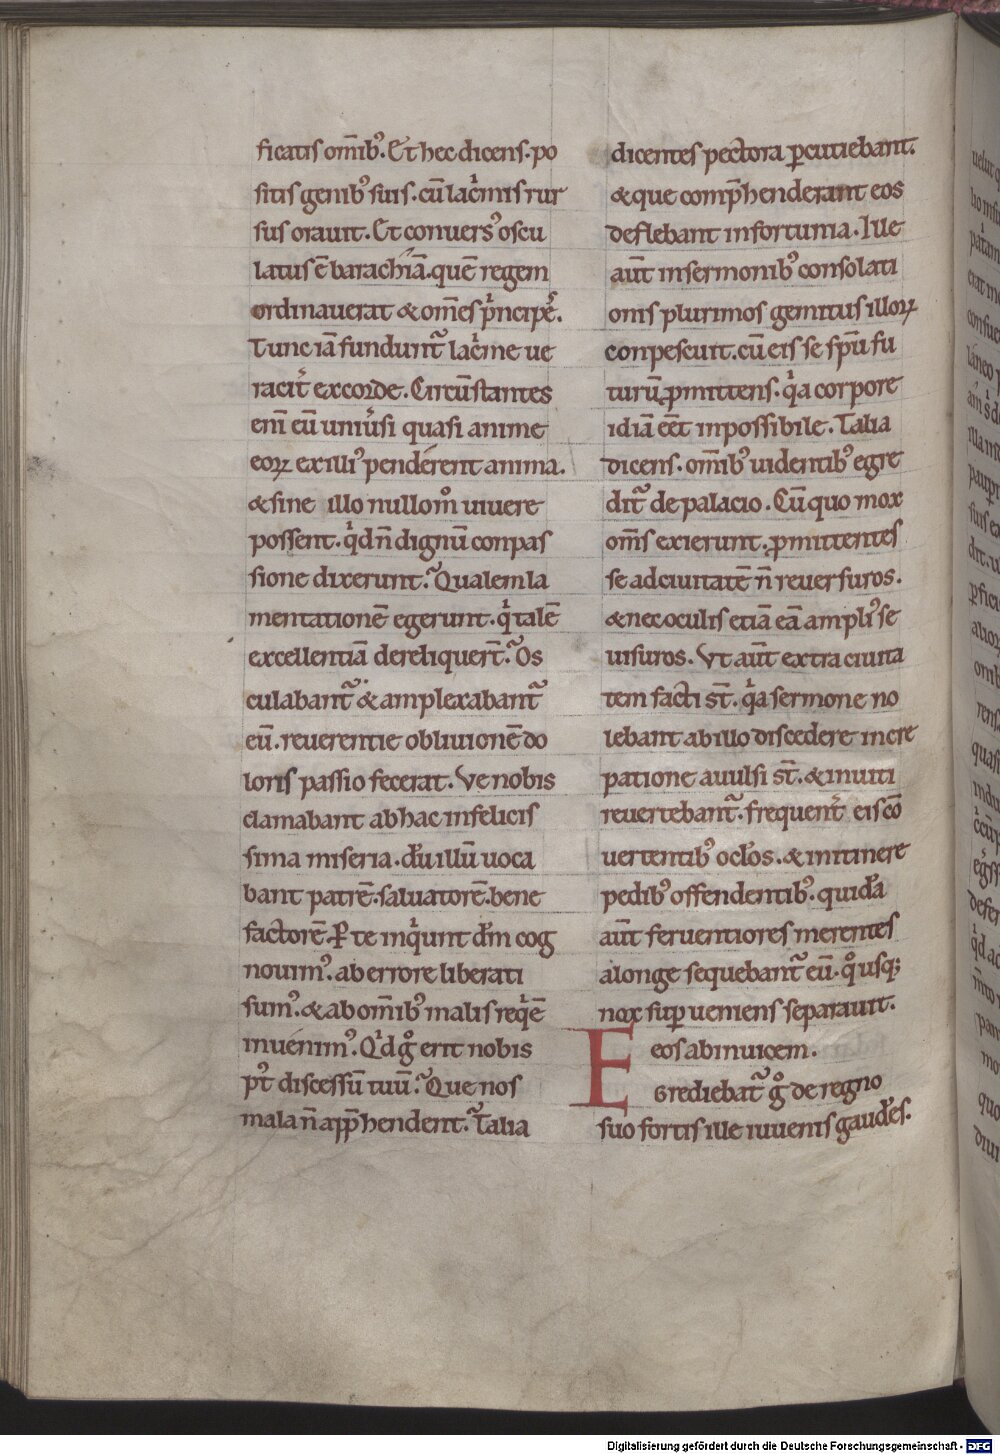 ficatis om̄ib᾽. Et hec dicens. po
sitis genib᾽ suis. cū lac̍mis rur
sus orauit. Et conuers᾽ oscu
latus ē barachiā. quē regem
ordinauerat & om̄es p̍ncipes.
Tunc iā fundunt᷑ lac̍me ue
racit̾ ex corde. Circūstantes
eni eū uniu̾si quasi anime
eoꝝ ex illi᾽ penderent anima.
& sine illo nullom̊ uiuere
possent. q̍d n̄ dignū conpas
sione dixerunt. Qualem la
mentationē egerunt. q̍ talē
excellentiā derelinquert̄. Os
culabant᷑ & amplexabant᷑
eū. reuerentie obliuionē do
loris passio fecerat. Ve nobis
clamabant ab hac infelicis
sima miseria. dn̄ illū uoca
bant patrē. saluatorē. bene
factorē. P te inq̍unt dm̄ cog
nouim᾽. ab errore liberati
sum᾽. & ab om̄ib᾽ malis req̍ē
inuenim᾽. Q̍d g̊ erit nobis
p᾽t discessū tuū. Que nos
mala n̄ app̄hendent. Talia
dicentes pectora ꝑcutiebant.
& que comp̄henderant eos
deflebant infortunia. Ille
aūt in sermonib᾽ consolati
onis plurimos gemitus illoꝝ
conpescuit. cū eis se sp̄u fu
turū ꝓmittens. q̍a corpore
id iā eēt inpossibile. Talia
dicens. om̄ib᾽ uidentib᾽ egre
dit᷑ de palacio. Cū quo mox
om̄s exierunt. ꝓmittentes
se ad ciuitatē n̄ reuersuros.
& nec oculis etiā eā ampli᾽ se
uisuros. Vt aūt extra ciuita
tem facti st̄. q̍a sermone no
lebant ab illo discedere incre
patione auulsi st̄. & inuiti
reuertebant᷑. frequent̾ eis cō
uertentib᾽ oclos. & in itinere
pedib᾽ offendentib᾽. quida
aūt feruentiores merentes
a longe sequebant᷑ eū. q̊usq;
nox suꝑueniens separauit.
eos ab inuicem.
Egrediebat᷑ g̊ de regno
suo fortis ille iuuenis gaudes.
Digitalisierung gefördert durch die Deutsche Forschungsgemeinschaft - DFG